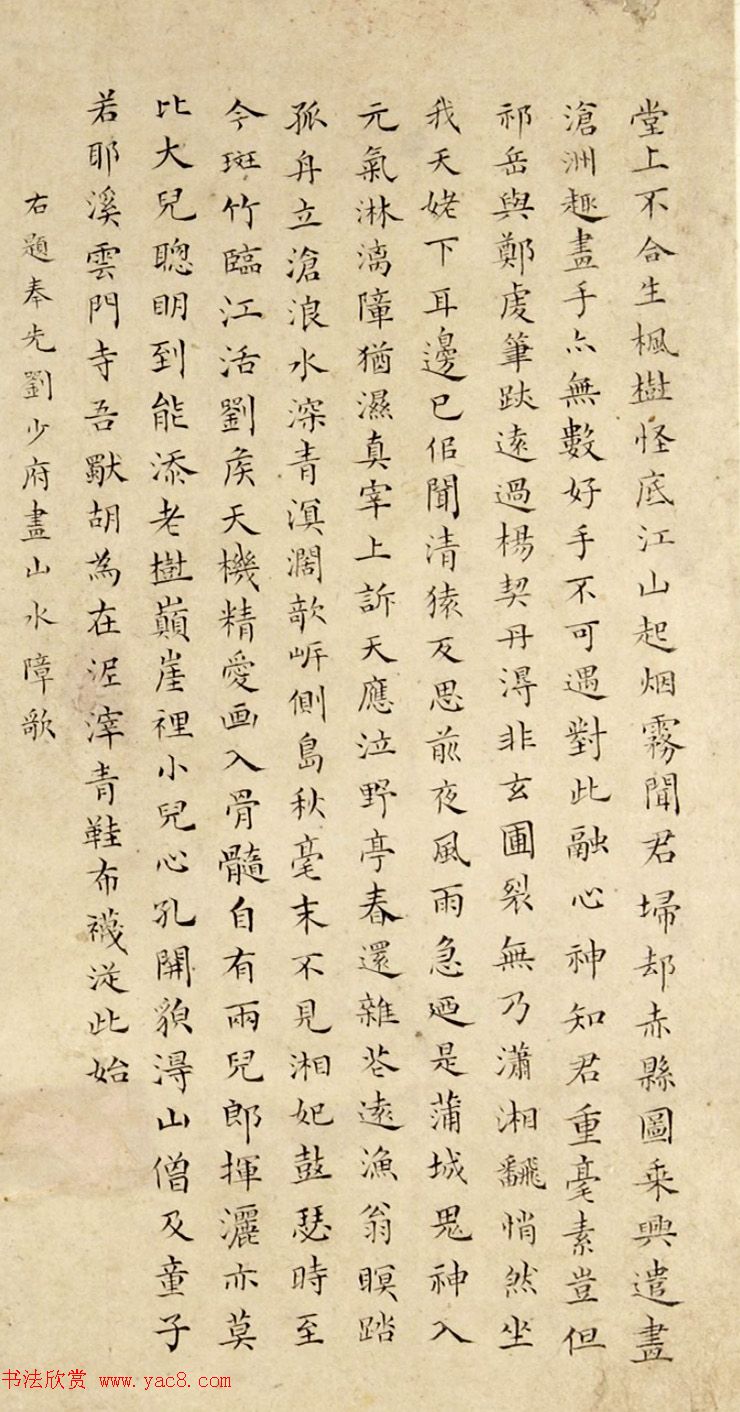 堂上不合生楓樹怪底江山起烟霧聞君埽却赤縣圖乘興遣畫
滄洲趣畫手亦無數好手不可遇對此融心神知君重毫素豈但
祁岳與鄭虔筆跡遠過楊契丹得非玄圃裂無乃瀟湘翻悄然坐
我天姥下耳邊已佀聞清猿反思前夜風雨急迺是蒲城鬼神入
元氣淋漓障猶濕真宰上訴天應泣野亭春還雜花遠漁翁暝踏
孤舟立滄浪水深青溟濶欹岸側島秋毫末不見湘妃鼓瑟時至
今斑竹臨江活劉侯天機精愛画入骨髓自有兩兒郎揮灑亦莫
比大兒聰明到能添老樹巔崖裡小兒心孔開貌得山僧及童子
若耶溪雲門寺吾獸胡為在泥滓青鞋布襪從此始
右題奉先劉少府畫山水障歌
书法欣赏 www.yac8.com